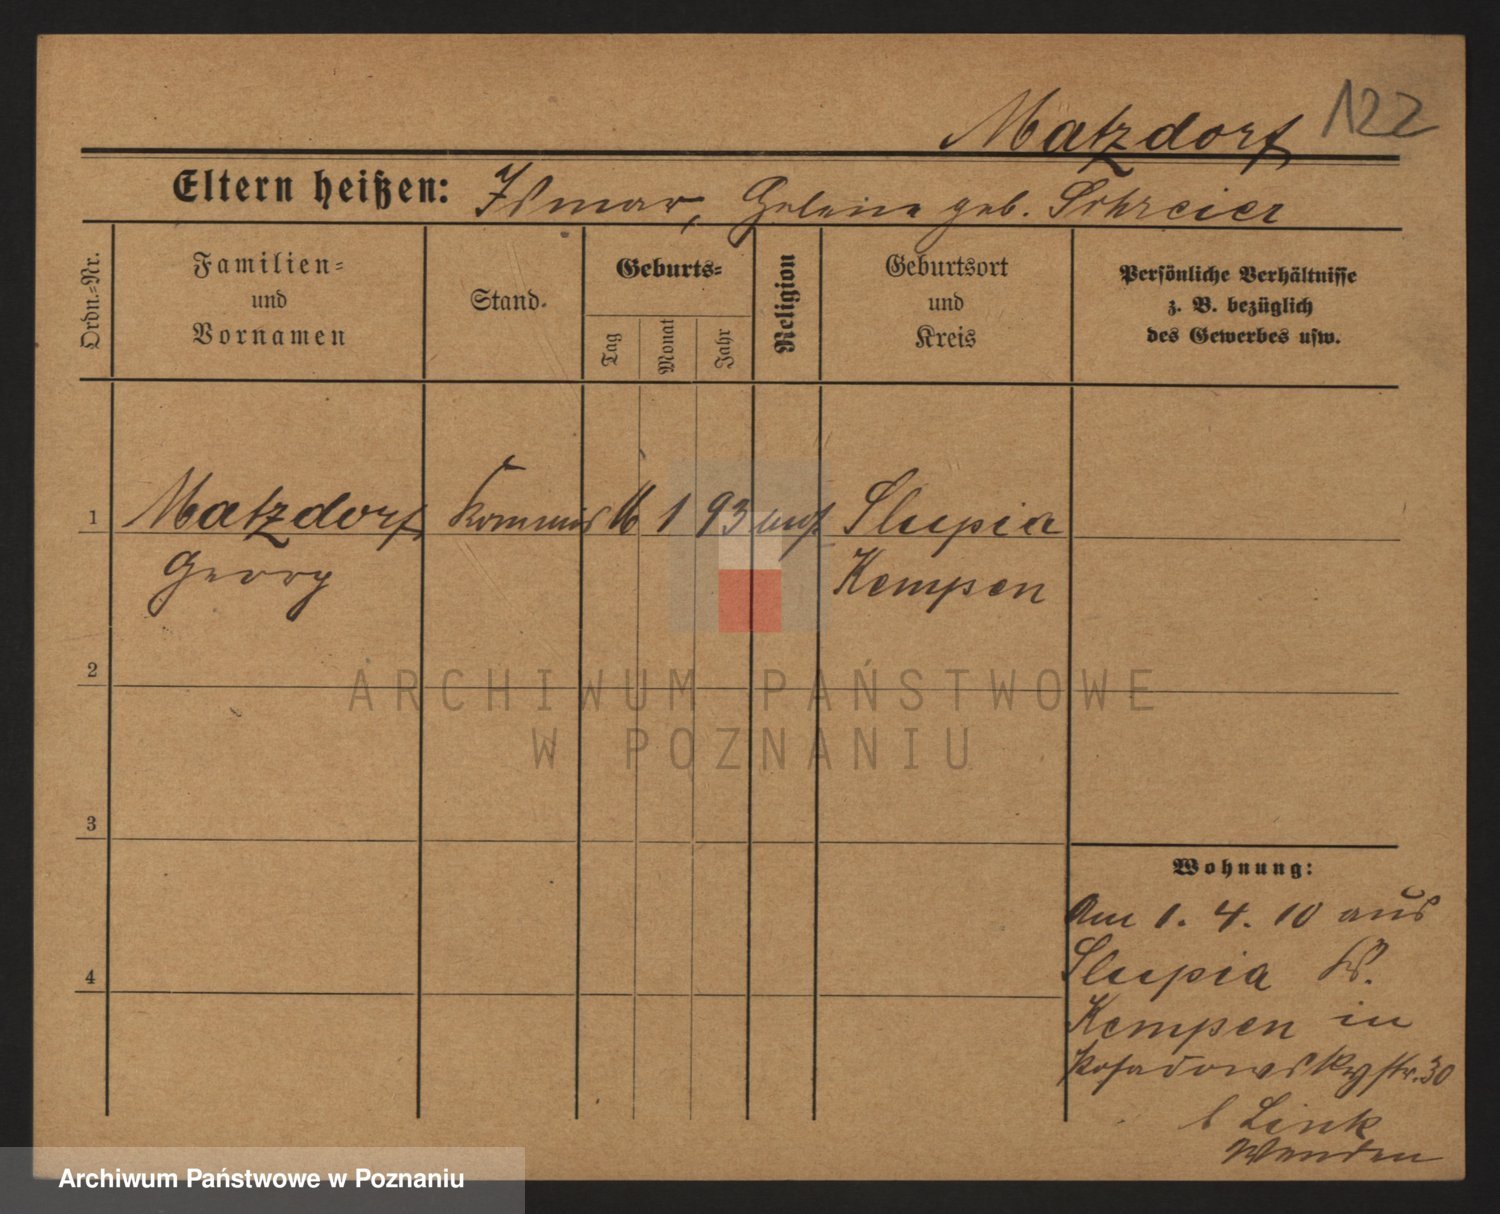 Matzdorf 122
Eltern heißen: Ismar, Helene geb. Schreier
Ordn.-Nr.
Familien-
und
Vornamen
Stand.
Geburts-
Tag
Monat
Jahr
Religion
Geburtsort
und
Kreis
Persönliche Verhältnisse
z. B. bezüglich
des Gewerbes usw.
1 Matzdorf Kommis 16 1 93 mos. Slupia
Georg Kempen
2
ARCHIWUM PAŃSTWOWE
W POZNANIU
3
Wohnung:
Am 1. 4. 10 aus
4 Slupia K.
Kempen in
Posadowskystr. 30
b Link
Wenden
Archiwum Państwowe w Poznaniu